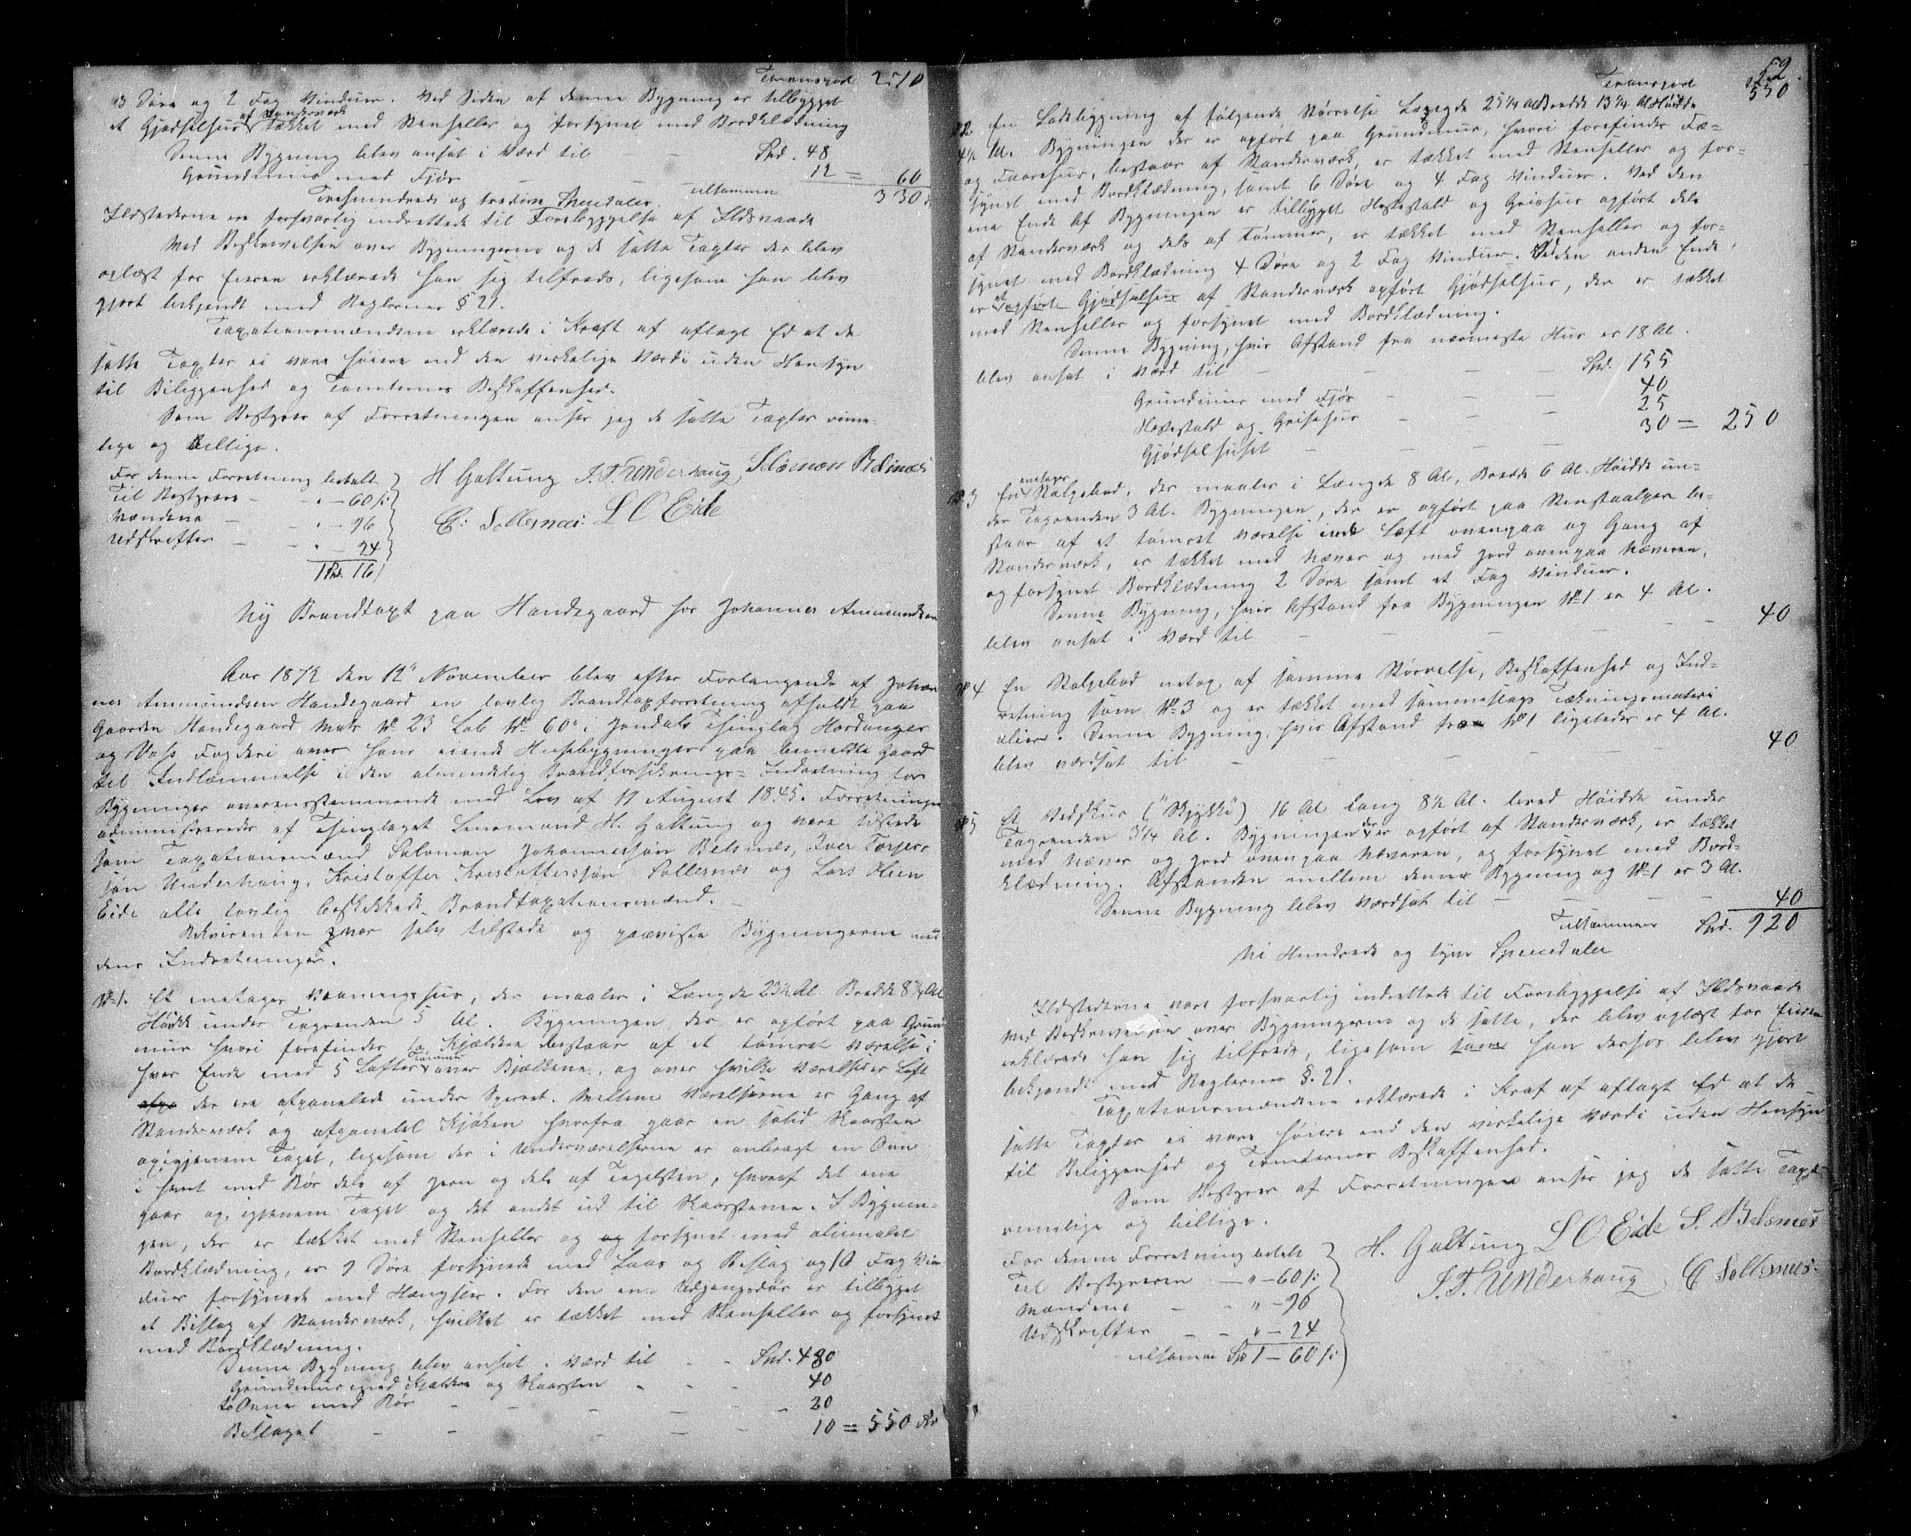 Transport 270
3 Døre og 2 Fag Vinduer. Ved Siden af denne Bygning er tilbygget
af Standerværk
et Gjødselhus tækket med Stenheller og forsynet med Bordklædning
Denne Bygning blev ansat i Værd til - Spd. 48
Grundmuur med Fjøs - - 12 = 60
Trehundrede og tredive Speciedaler tilsammen 330
Ildstederne ere forsvarlig indrettede til Forebyggelse af Ildsvaade
Med Beskrivelsen over Bygningerne og de satte Taxter der blev
oplæst for Eieren erklærede han sig tilfreds, ligesom han blev
gjort bekjendt med Reglernes § 21.
Taxationsmændene erklærede i Kraft af aflagt Ed at de
satte Taxter ei vare høiere end den virkelige Værdi uden Hensyn
til Beliggenhed og Tomternes Beskaffenhed.
Som Bestyrer af Forretningen anser jeg de satte Taxter rime-
lige og billige.
For denne Forretning betalt
Til Bestyreren - " - 60 ß
Mændene - " - 96
Udskrifter - " - 24
1 Spd. 16
H Galtung J. T. Underhaug, Salomon Belsnæs
C: Sollesnæs: L O Eide
Ny Brandtaxt paa Handegaard for Johannes Ammundsen
Aar 1872 den 12te November blev efter Forlangende af Johan-
nes Ammundsen Handegaard en lovlig Brandtaxtforretning afholdt paa
Gaarden Handegaard Matr No 23 Løb No 60a i Jondals Thinglag Hardanger
og Voss Fogderi over hans eiende Husebygninger paa bemeldte Gaard
til Indlemmelse i den almindelig Brandforsikrings-Indretning for
Bygninger overensstemmende med Lov af 19 August 1845. Forretningen
administreredes af Thinglagets Lensmand H. Galtung og vare tilstede
som Taxationsmænd Salomon Johannessøn Belsnæs, Iver Torjers-
søn Underhaug, Kristoffer Kristofferssøn Sollesnæs og Lars Olsen
Eide alle lovlig beskikkede Brandtaxationsmænd.
Rekvirenten var selv tilstede og paaviste Bygningerne med
deres Indretninger.
No 1. Et enetages Vaaningshus, der maaler i Længde 23½ Al Bredde 8¾ Al
Høide under Tagrenden 5 Al. Bygningen, der er opført paa Grund-
muur hvori forefindes to Kjældere bestaar af et tømret Værelse i
hver Ende med 5 Lofter Tømmer over Bjelkene, og over hvilke Værelser er Loft
der ere afpanelede under Sperret. Mellem Værelserne er Gang af
Standerværk og afpanelet Kjøken hvorfra gaar en solid Skorsten
op igjennem Taget, ligesom der i Underværelserne er anbragt en Ovn
i hvert med Rør dels af Jern og dels af Tegelsten, hvoraf det ene
gaar op igjennem Taget og det andet ud til Skorstenen. I Bygnin-
gen, der er tækket med Stenheller og og forsynet med oliemalet
Bordklædning, er 9 Døre forsynede med Laas og Beslag og 10 Fag Vin-
duer forsynede med Hængsler. For den ene Udgangsdør er tilbygget
et Bislag af Standerværk, hvilket er tækket med Stenheller og forsynet
med Bordklædning.
Denne Bygning blev ansat i Værd til - - Spd. 480
Grundmuur med Kjældere og Skorsten - - - 40
to Ovne med Rør - - - - 20
Bislaget - - - - 10 = 550 Spd
52
Transport 550
No 2. En Ladebygning af følgende Størrelse Længde 25¼ Al Bredde 13¼ Al Høide
4½ Al. Bygningen der er opført paa Grundmuur, hvori forefindes Fæ-
og Faarehus, bestaar af Standerværk, er tækket med Stenheller og for-
synet med Bordklædning, samt 6 Døre og 4 Fag Vinduer. Ved den
ene Ende af Bygningen er tilbygget Hestestald og Grisehus opført dels
af Standerværk og dels af Tømmer, er tækket med Stenheller og for-
synet med Bordklædning 4 Døre og 2 Fag Vinduer. Ved den anden Ende,
er opført Gjødselhus af Standerværk opført Gjødselhus, der er tækket
med Stenheller og forsynet med Bordklædning.
Denne Bygning, hvis Afstand fra nærmeste Hus er 18 Al.
blev ansat i Værd til - - - Spd. 155
Grundmuur med Fjøs - - - 40
Hestestald og Grisehus - - - 25
Gjødselhuset - - - 30 = 250
No 3 En enetages Stolpebod, der maaler i Længde 8 Al, Bredde 6 Al. Høide un-
der Tagrenden 3 Al. Bygningen, der er opført paa Stenstaalper be-
staar af et tømret Værelse Loft ovenpaa og Gang af
Standerværk, er tækket med Næver og med Jord ovenpaa Næveren,
og forsynet Bordklædning 2 Døre samt et Fag Vinduer.
Denne Bygning, hvis Afstand fra Bygningen No 1 er 4 Al.
blev ansat i Værd til - - - - - 40
No 4 En Stolpebod netop af samme Størrelse, Beskaffenhed og Ind-
retning som No 3 og er tækket med sammeslags Tækningsmateri-
alier. Denne Bygning, hvis Afstand fra No 1 ligeledes er 4 Al.
blev værdsat til - - - - 40
No 5 Et Vedskur ("Skykkje") 16 Al lang 8½ Al. bred Høide under
Tagrenden 3¼ Al. Bygningen der er opført af Standerværk, er tækket
med Næver og Jord ovenpaa Næveren, og forsynet med Bord-
klædning. Afstanden mellem denne Bygning og No 1 er 3 Al.
Denne Bygning blev Værdsat til - - - - 40
Tilsammen Spd. 920
Ni Hundrede og tyve Speciedaler
Ildstederne vare forsvarlig indrettede til Forebyggelse af Ildsvaade
Med Beskrivelsen over Bygningerne og de satte, der blev oplæst for Eieren
erklærede han sig tilfreds, ligesom han derhos blev gjort
bekjendt med Reglernes §. 21.
Taxationsmændene erklærede i Kraf af aflagt Ed at de
satte Taxter ei vare høiere end den virkelige Værdi uden Hensyn
til Beliggenhed og Tomternes Beskaffenhed.
Som Bestyrer af Forretningen anser jeg de satte Taxter
rimelige og billige.
For denne Forretning betalt
Til Bestyreren - " - 60 ß
Mændene - - " - 96
Udskrifter - - " - 24
tilsammen Sp 1 - 60 ß
H. Galtung L O Eide S. Belsnæs
J. T. Underhaug C Sollesnæs